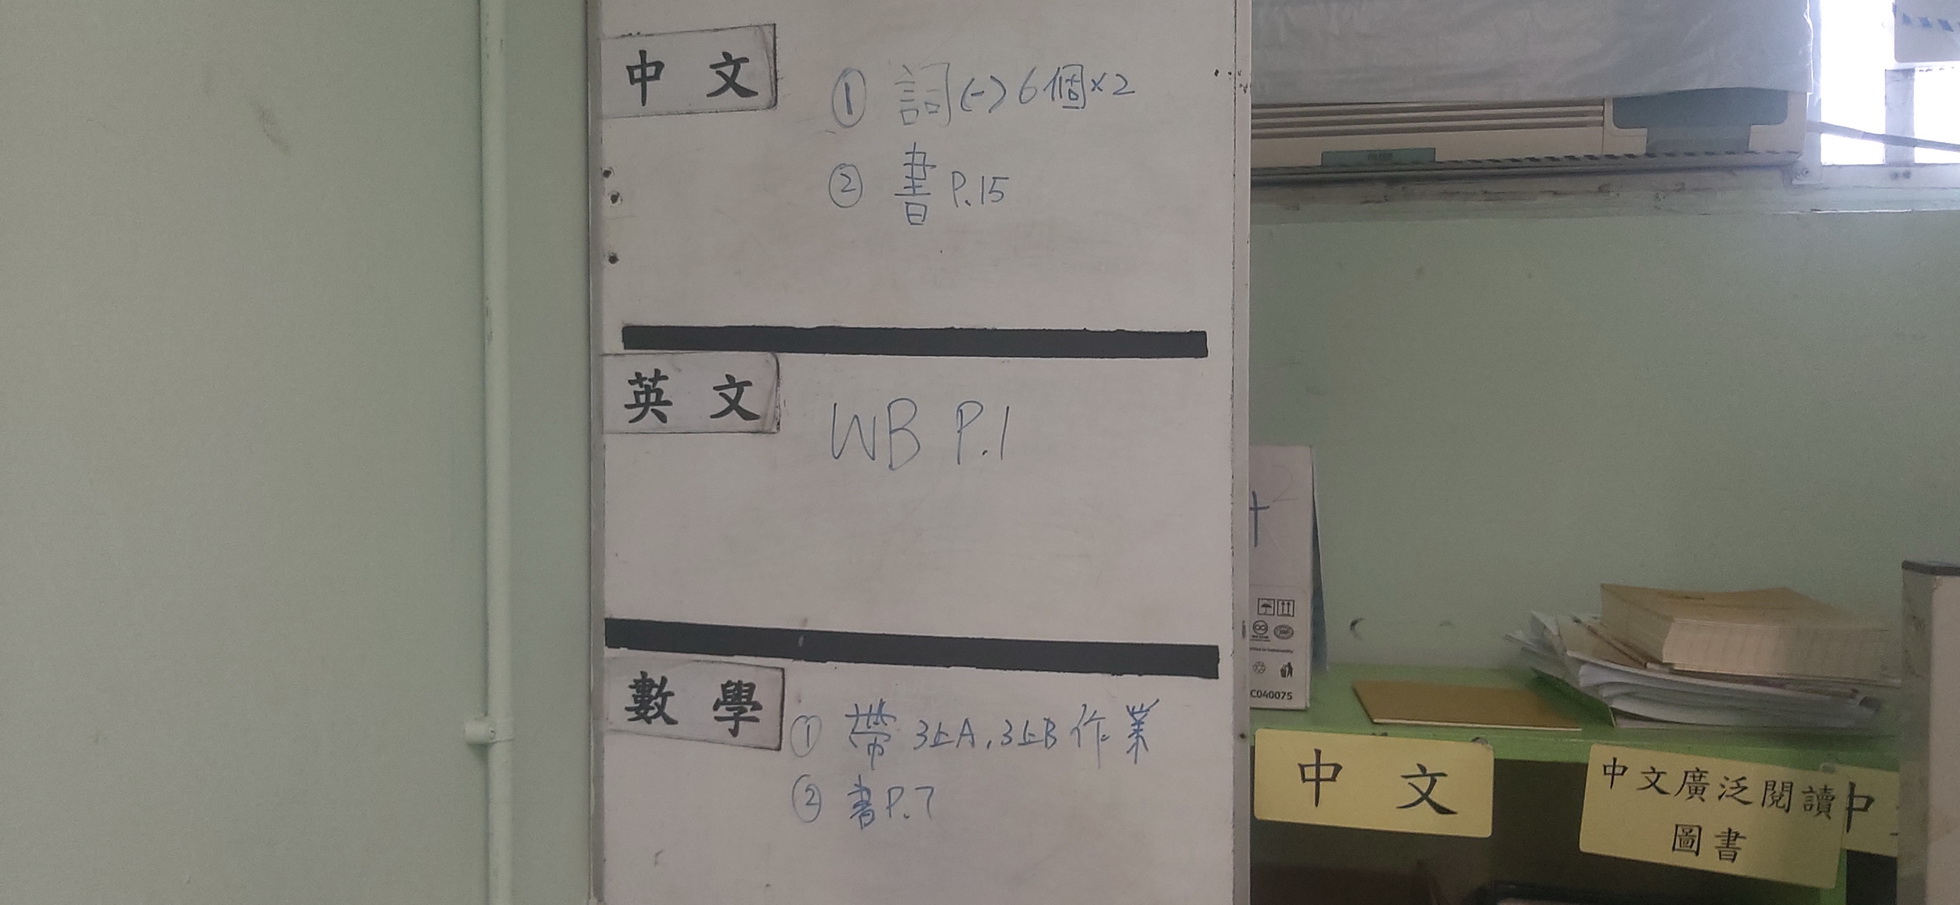 中文
① 詞(一)6個×2
② 書 P.15
英文
WB P.1
數學
① 帶 3上A,3上B 作業
② 書P.7
C040075
中文
中文廣泛閱讀
圖書
中